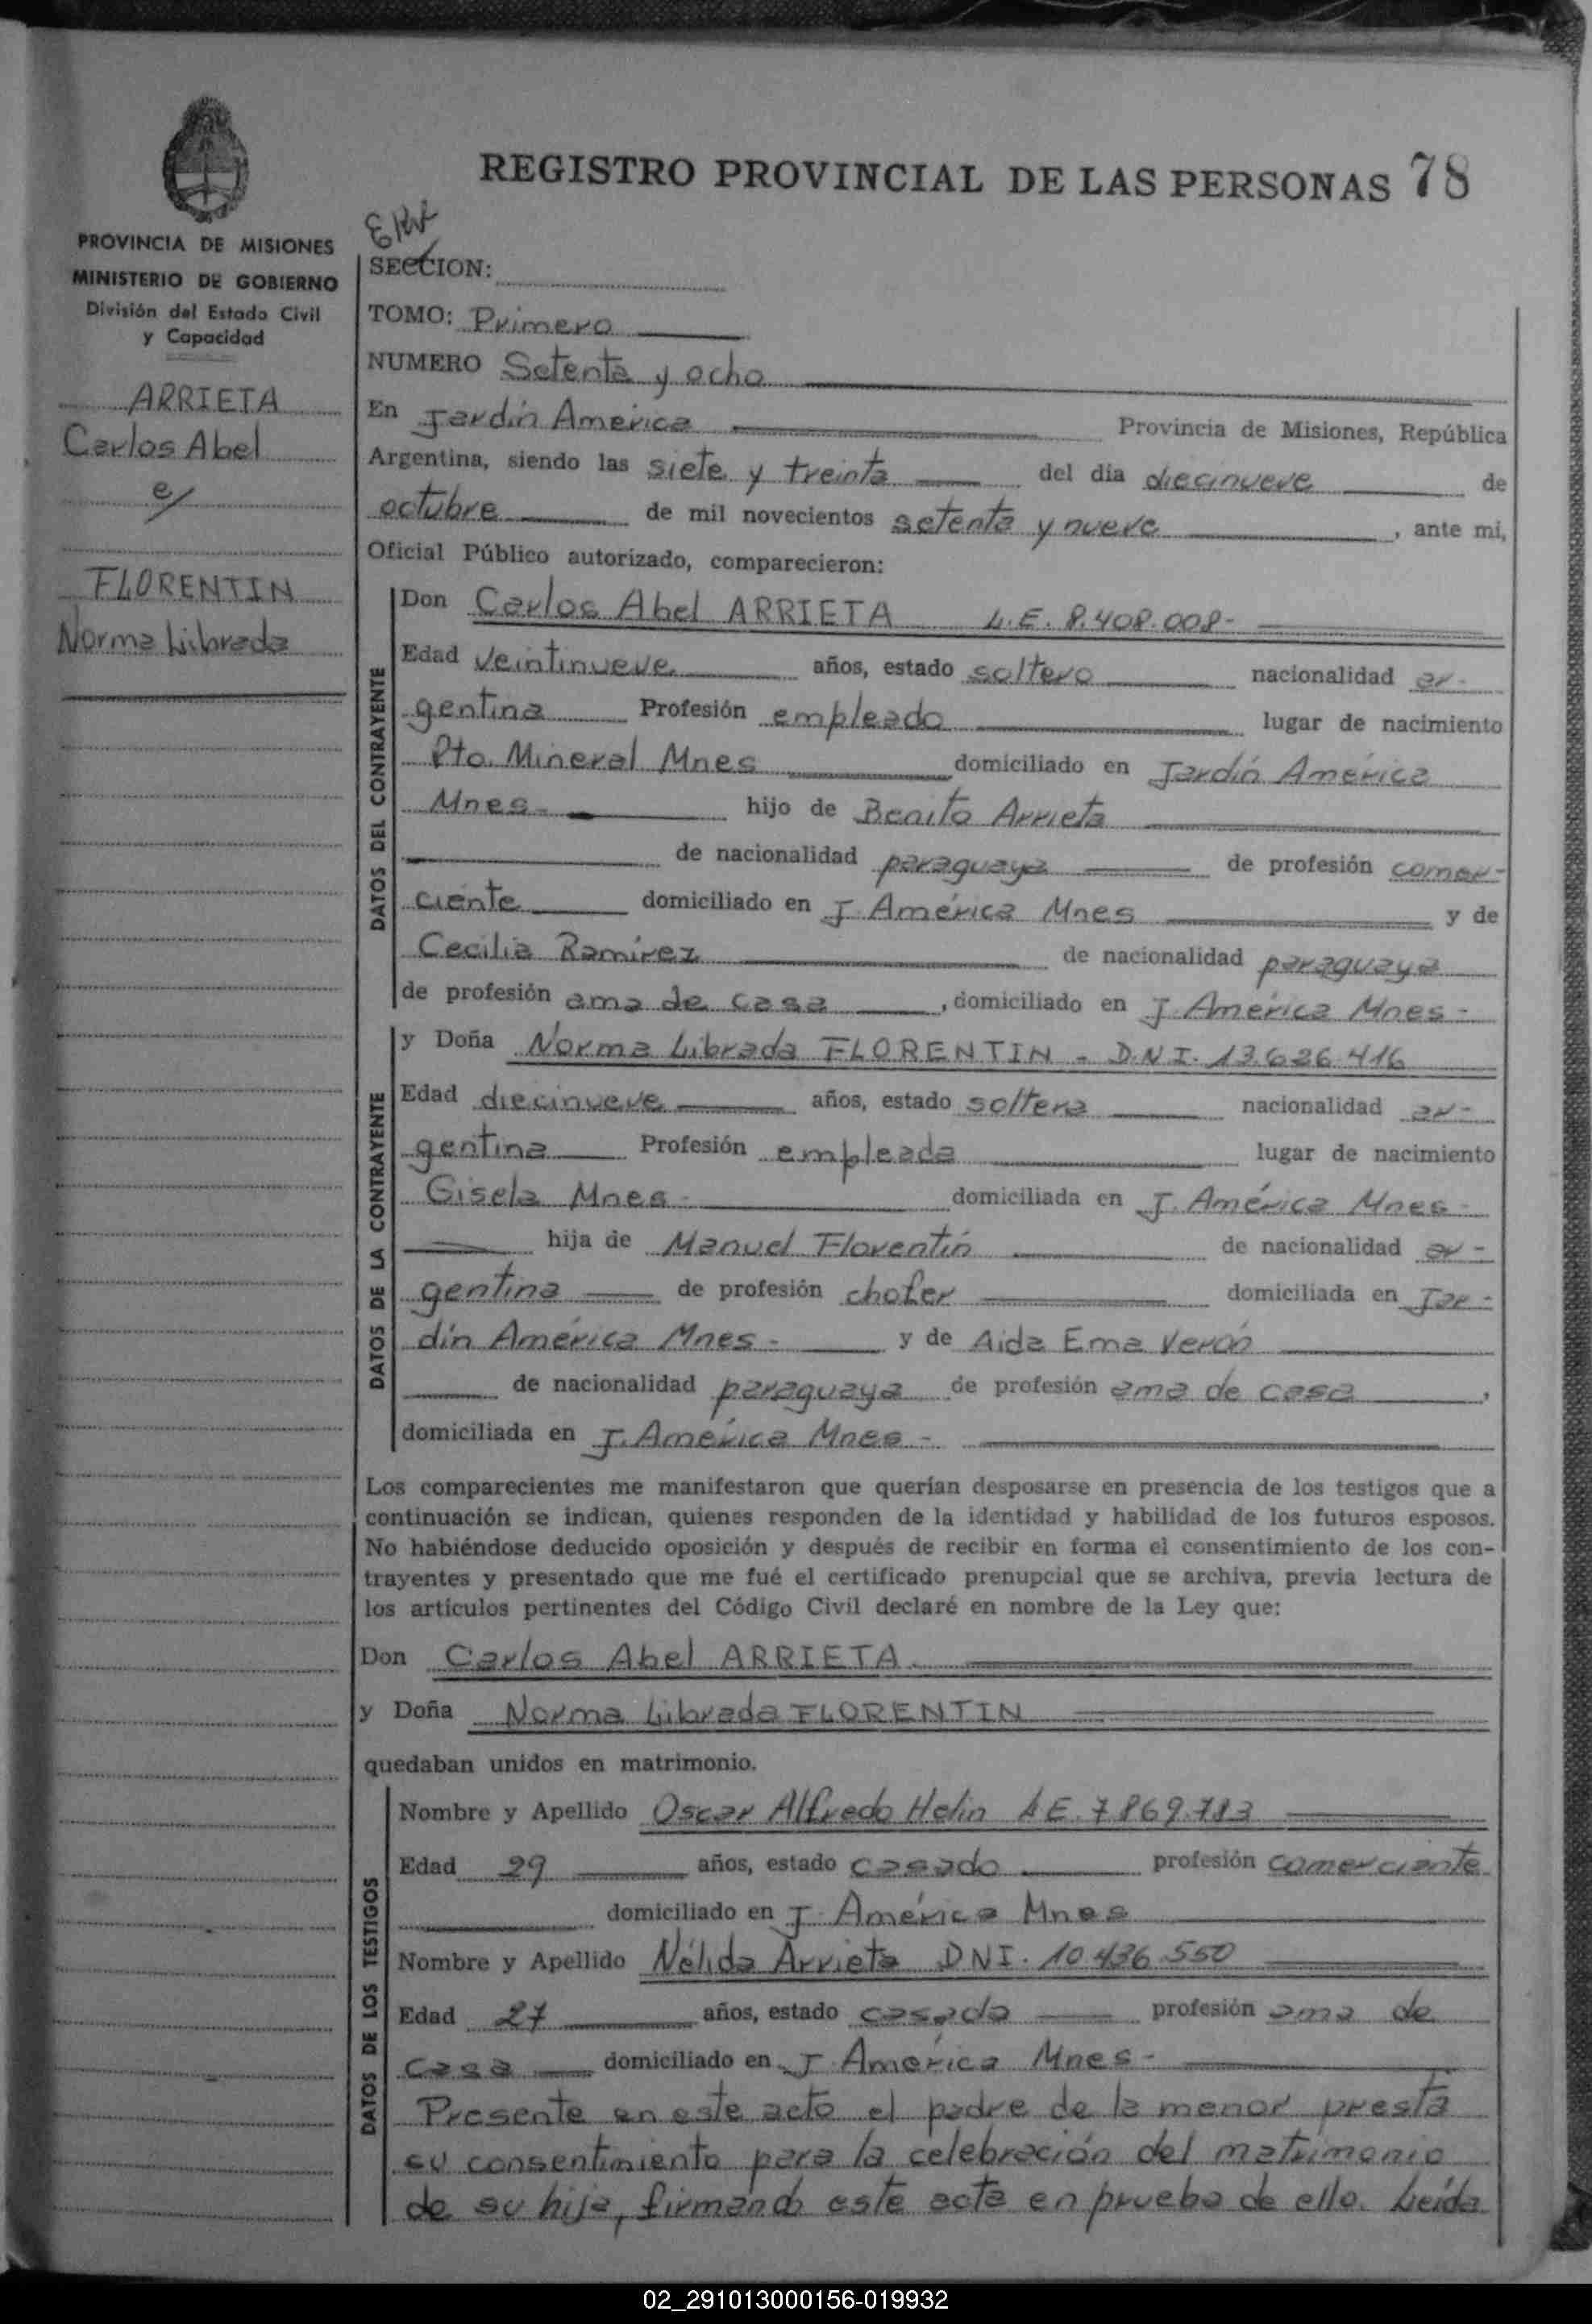 REGISTRO PROVINCIAL DE LAS PERSONAS 78
PROVINCIA DE MISIONES
MINISTERIO DE GOBIERNO
División del Estado Civil
y Capacidad
ARRIETA
Carlos Abel
c/
FLORENTIN
Norma Librada
SECCION:
TOMO: Primero
NUMERO Setenta y ocho
En Jardín América Provincia de Misiones, República
Argentina, siendo las siete y treinta del dia diecinueve de
octubre de mil novecientos setenta y nueve, ante mi,
Oficial Público autorizado, comparecieron:
DATOS DEL CONTRAYENTE
Don Carlos Abel ARRIETA L.E. 8.408.008-
Edad veintinueve años, estado soltero nacionalidad ar-
gentina Profesión empleado lugar de nacimiento
Pto. Mineral Mnes domiciliado en Jardín América
Mnes- hijo de Benito Arrieta
de nacionalidad paraguaya de profesión comer-
ciente domiciliado en J. América Mnes y de
Cecilia Ramírez de nacionalidad paraguaya
de profesión ama de casa, domiciliado en J. América Mnes-
DATOS DE LA CONTRAYENTE
y Doña Norma Librada FLORENTIN - D.N.I. 13.626.416
Edad diecinueve años, estado soltera nacionalidad ar-
gentina Profesión empleada lugar de nacimiento
Gisela Mnes- domiciliada en J. América Mnes-
hija de Manuel Florentín de nacionalidad ar-
gentina de profesión chofer domiciliada en Jar-
dín América Mnes- y de Aida Ema Verón
de nacionalidad paraguaya de profesión ama de casa,
domiciliada en J. América Mnes-
Los comparecientes me manifestaron que querían desposarse en presencia de los testigos que a
continuación se indican, quienes responden de la identidad y habilidad de los futuros esposos.
No habiéndose deducido oposición y después de recibir en forma el consentimiento de los con-
trayentes y presentado que me fué el certificado prenupcial que se archiva, previa lectura de
los artículos pertinentes del Código Civil declaré en nombre de la Ley que:
Don Carlos Abel ARRIETA
y Doña Norma Librada FLORENTIN
quedaban unidos en matrimonio.
DATOS DE LOS TESTIGOS
Nombre y Apellido Oscar Alfredo Helin L.E. 7.869.783
Edad 29 años, estado casado profesión comerciante
domiciliado en J. América Mnes
Nombre y Apellido Nélida Arrieta DNI. 10.436.550
Edad 27 años, estado casada profesión ama de
casa domiciliado en J. América Mnes-
Presente en este acto el padre de la menor presta
su consentimiento para la celebración del matrimonio
de su hija, firmando este acta en prueba de ello. Leída
02_291013000156-019932